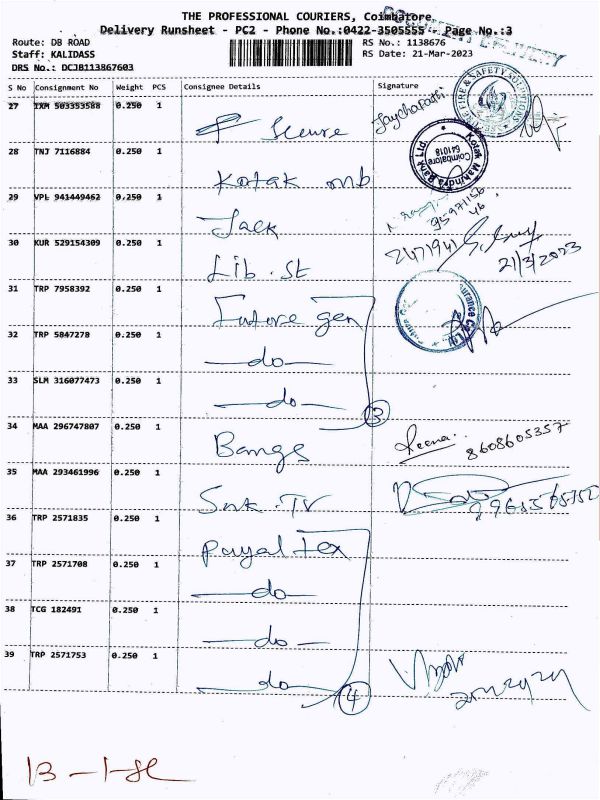 THE PROFESSIONAL COURIERS, Coimbatore
Delivery Runsheet - PC2 - Phone No.:0422-3505555 - Page No.:3
Route: DB ROAD RS No.: 1138676
Staff: KALIDASS RS Date: 21-Mar-2023
DRS No.: DCJB113867603
S No Consignment No Weight PCS Consignee Details Signature
27 IXM 503353588 0.250 1 Secure
FIRE & SAFETY SOLUTIONS
28 TNJ 7116884 0.250 1 Kotak mb
Kotak Mahindra Bank Ltd Coimbatore 641018
29 VPL 941449462 0.250 1 Jack
30 KUR 529154309 0.250 1 Lib. St 2471941 21/3/2023
31 TRP 7958392 0.250 1 Future gen
32 TRP 5847278 0.250 1 do
33 SLM 316077473 0.250 1 do 3
34 MAA 296747807 0.250 1 Bangs Reena. 8608605357
35 MAA 293461996 0.250 1
36 TRP 2571835 0.250 1 Payal tex
37 TRP 2571708 0.250 1 do
38 TCG 182491 0.250 1 do
39 TRP 2571753 0.250 1 do 4